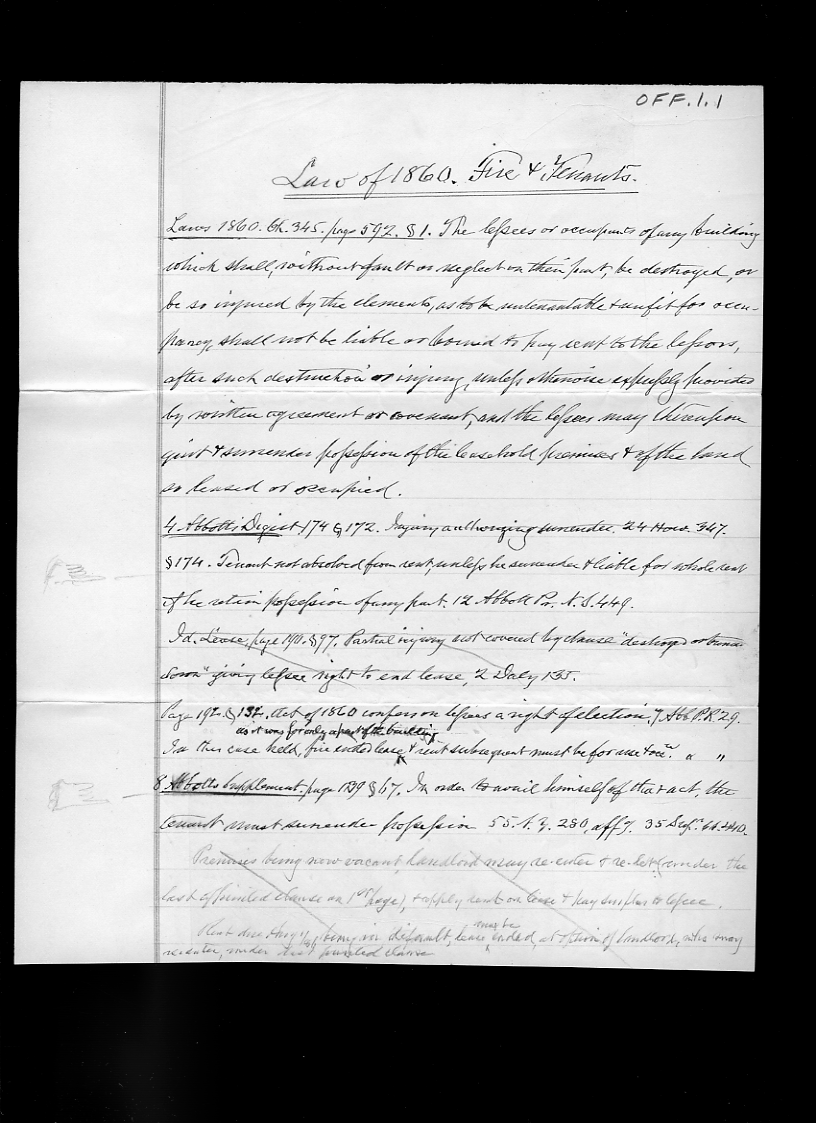 OFF.1.1
Law of 1860. Fire & Tenants.
Laws 1860. Ch. 345. page 592. §1. The lessees or occupants of any building
which shall, without fault or neglect on their part, be destroyed, or
be so injured by the elements, as to be untenantable & unfit for occu-
pancy, shall not be liable or bound to pay rent to the lessors,
after such destruction or injury, unless otherwise expressly provided
by written agreement or covenant, and the lessees may thereupon
quit & surrender possession of the leasehold premises & of the land
so leased or occupied.
4 Abbott's Digest 174 § 172. Injury authorizing surrender. 24 How. 347.
§174. Tenant not absolved from rent, unless he surrender & liable for whole rent
if he retain possession of any part. 12 Abbott Pr. N.S. 449.
Id. Lease, page 190. §97. Partial injury not covered by clause "destroyed or burned
down" giving lessee right to end lease, 2 Daly 135.
Page 192. § 132. Act of 1860 confers on lessees a right of election. 7 Abb P.R. 29.
as it was for only a part of the building
In this case held, fire ended lease & rent subsequent must be for use & occ.n " "
8 Abbotts Supplement. page 1239 § 67. In order to avail himself of that act, the
tenant must surrender possession 55. N.Y. 280, aff'g. 35 Sup. Ct. 440.
Premises being now vacant, landlord may re-enter & re-let (under the
last printed clause on 1st page), & apply rent on lease & pay surplus to lessee.
must be
Rent due being in default, lease ended, at option of landlord, who may
re-enter, under last printed clause